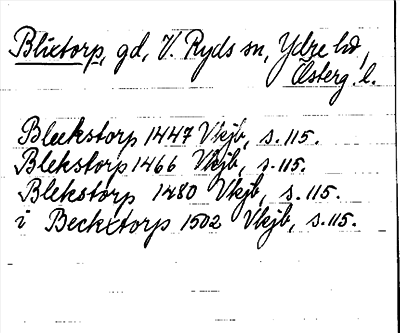 Blixtorp, gd, V. Ryds sn, Ydre hd,
Österg. l.
Bleekstorp 1447 Vkjb, s. 115.
Blekstorp 1466 Vkjb, s. 115.
Blekstorp 1480 Vkjb, s. 115.
i Beckxtorp 1502 Vkjb, s. 115.